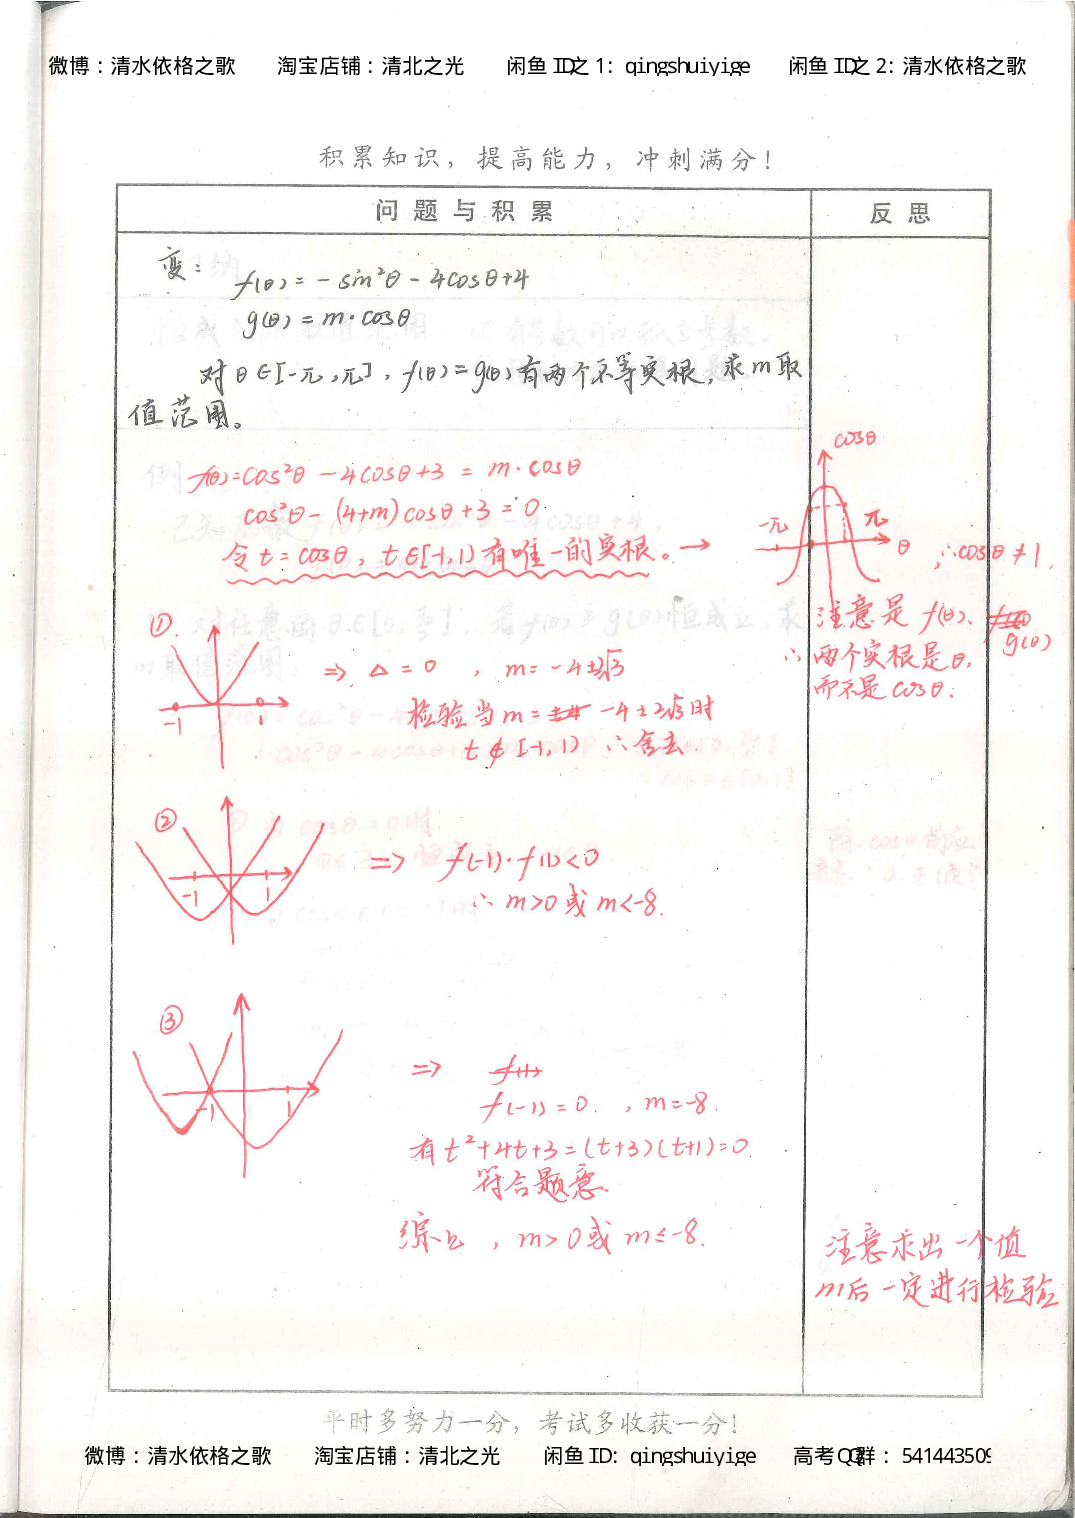 微博：清水依格之歌 淘宝店铺：清北之光 闲鱼 ID之 1: qingshuiyige 闲鱼 ID之 2: 清水依格之歌
积累知识，提高能力，冲刺满分！
问题与积累 反思
变： f(θ)=-sin²θ-4cosθ+4
g(θ)=m·cosθ
对θ∈[-π,π]，f(θ)=g(θ)有两个不等实根，求m取
值范围。
f(θ)=cos²θ-4cosθ+3=m·cosθ
cos²θ-(4+m)cosθ+3=0
令t=cosθ，t∈[-1,1)有唯一的实根。→
cosθ
-π π θ
∴cosθ≠1.
注意是f(θ)、g(θ)
∴两个实根是θ，
而不是cosθ.
① -1 1
⇒ Δ=0，m=-4±2√3
检验当m=-4±2√3时
t∉[-1,1) ∴舍去.
② -1 1
⇒ f(-1)·f(1)<0
∴m>0或m<-8.
③ -1 1
⇒ f(1)
f(-1)=0.，m=-8.
有t²+4t+3=(t+3)(t+1)=0
符合题意.
综上，m>0或m≤-8.
注意求出一个值
m后一定进行检验
平时多努力一分，考试多收获一分！
微博：清水依格之歌 淘宝店铺：清北之光 闲鱼 ID: qingshuiyige 高考QQ群： 541443509